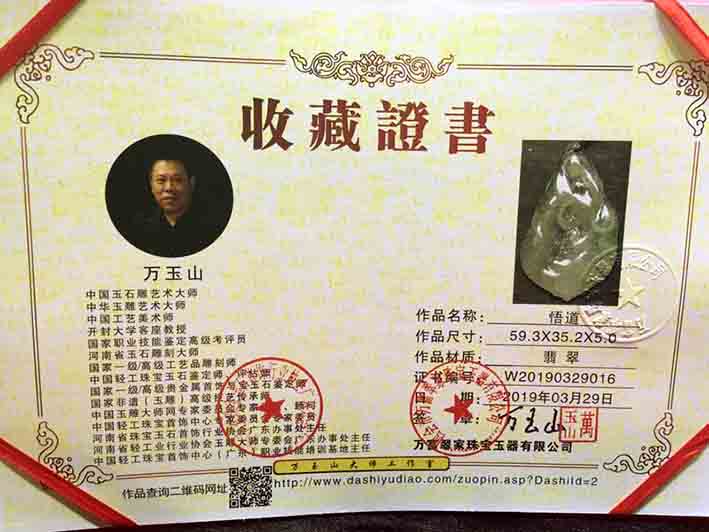 收藏證書
万玉山
中国玉石雕艺术大师
中华玉雕艺术大师
中国工艺美术师
开封大学客座教授
国家职业技能鉴定高级考评员
河南省玉石雕刻大师
国家一级/高级工艺品雕刻师
中国轻工珠宝玉石鉴定师、评估师
国家一级/高级贵金属首饰与宝玉石鉴定师
国家非遗（玉雕）高级技艺传承师
中国玉雕大师网专家委员会专家、顾问
中国轻工珠宝首饰中心专家委员会专家委员
河南省珠宝玉石首饰行业协会广东办事处主任
河南省轻工业行业协会玉雕大师专委会广东办事处主任
中国轻工珠宝首饰中心（广东）职业技能培训基地主任
作品名称：悟道
作品尺寸：59.3X35.2X5.0
作品材质：翡翠
证书编号：W20190329016
日期：2019年03月29日
签章：万玉山
万富翠家珠宝玉器有限公司
万玉山大师工作室
作品查询二维码网址
http://www.dashiyudiao.com/zuopin.asp?DashiId=2